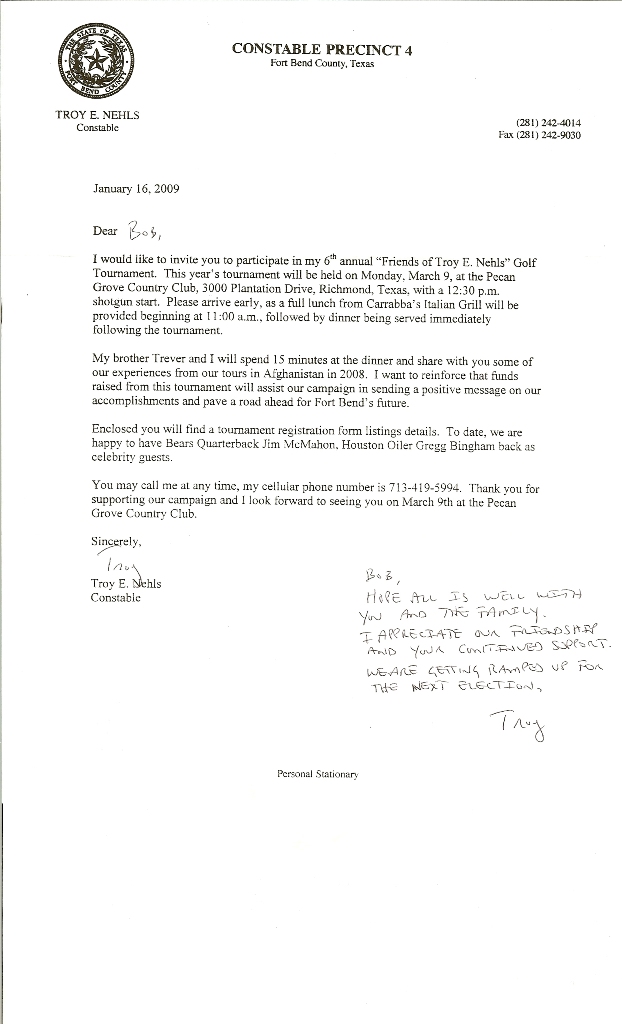 THE STATE OF TEXAS
FORT BEND COUNTY
CONSTABLE PRECINCT 4
Fort Bend County, Texas
TROY E. NEHLS
Constable
(281) 242-4014
Fax (281) 242-9030
January 16, 2009
Dear Bob,
I would like to invite you to participate in my 6th annual “Friends of Troy E. Nehls” Golf
Tournament. This year's tournament will be held on Monday, March 9, at the Pecan
Grove Country Club, 3000 Plantation Drive, Richmond, Texas, with a 12:30 p.m.
shotgun start. Please arrive early, as a full lunch from Carrabba's Italian Grill will be
provided beginning at 11:00 a.m., followed by dinner being served immediately
following the tournament.
My brother Trever and I will spend 15 minutes at the dinner and share with you some of
our experiences from our tours in Afghanistan in 2008. I want to reinforce that funds
raised from this tournament will assist our campaign in sending a positive message on our
accomplishments and pave a road ahead for Fort Bend's future.
Enclosed you will find a tournament registration form listings details. To date, we are
happy to have Bears Quarterback Jim McMahon, Houston Oiler Gregg Bingham back as
celebrity guests.
You may call me at any time, my cellular phone number is 713-419-5994. Thank you for
supporting our campaign and I look forward to seeing you on March 9th at the Pecan
Grove Country Club.
Sincerely,
Troy
Troy E. Nehls
Constable
BOB,
HOPE ALL IS WELL WITH
YOU AND THE FAMILY.
I APPRECIATE OUR FRIENDSHIP
AND YOUR CONTINUED SUPPORT.
WE ARE GETTING RAMPED UP FOR
THE NEXT ELECTION.
Troy
Personal Stationary